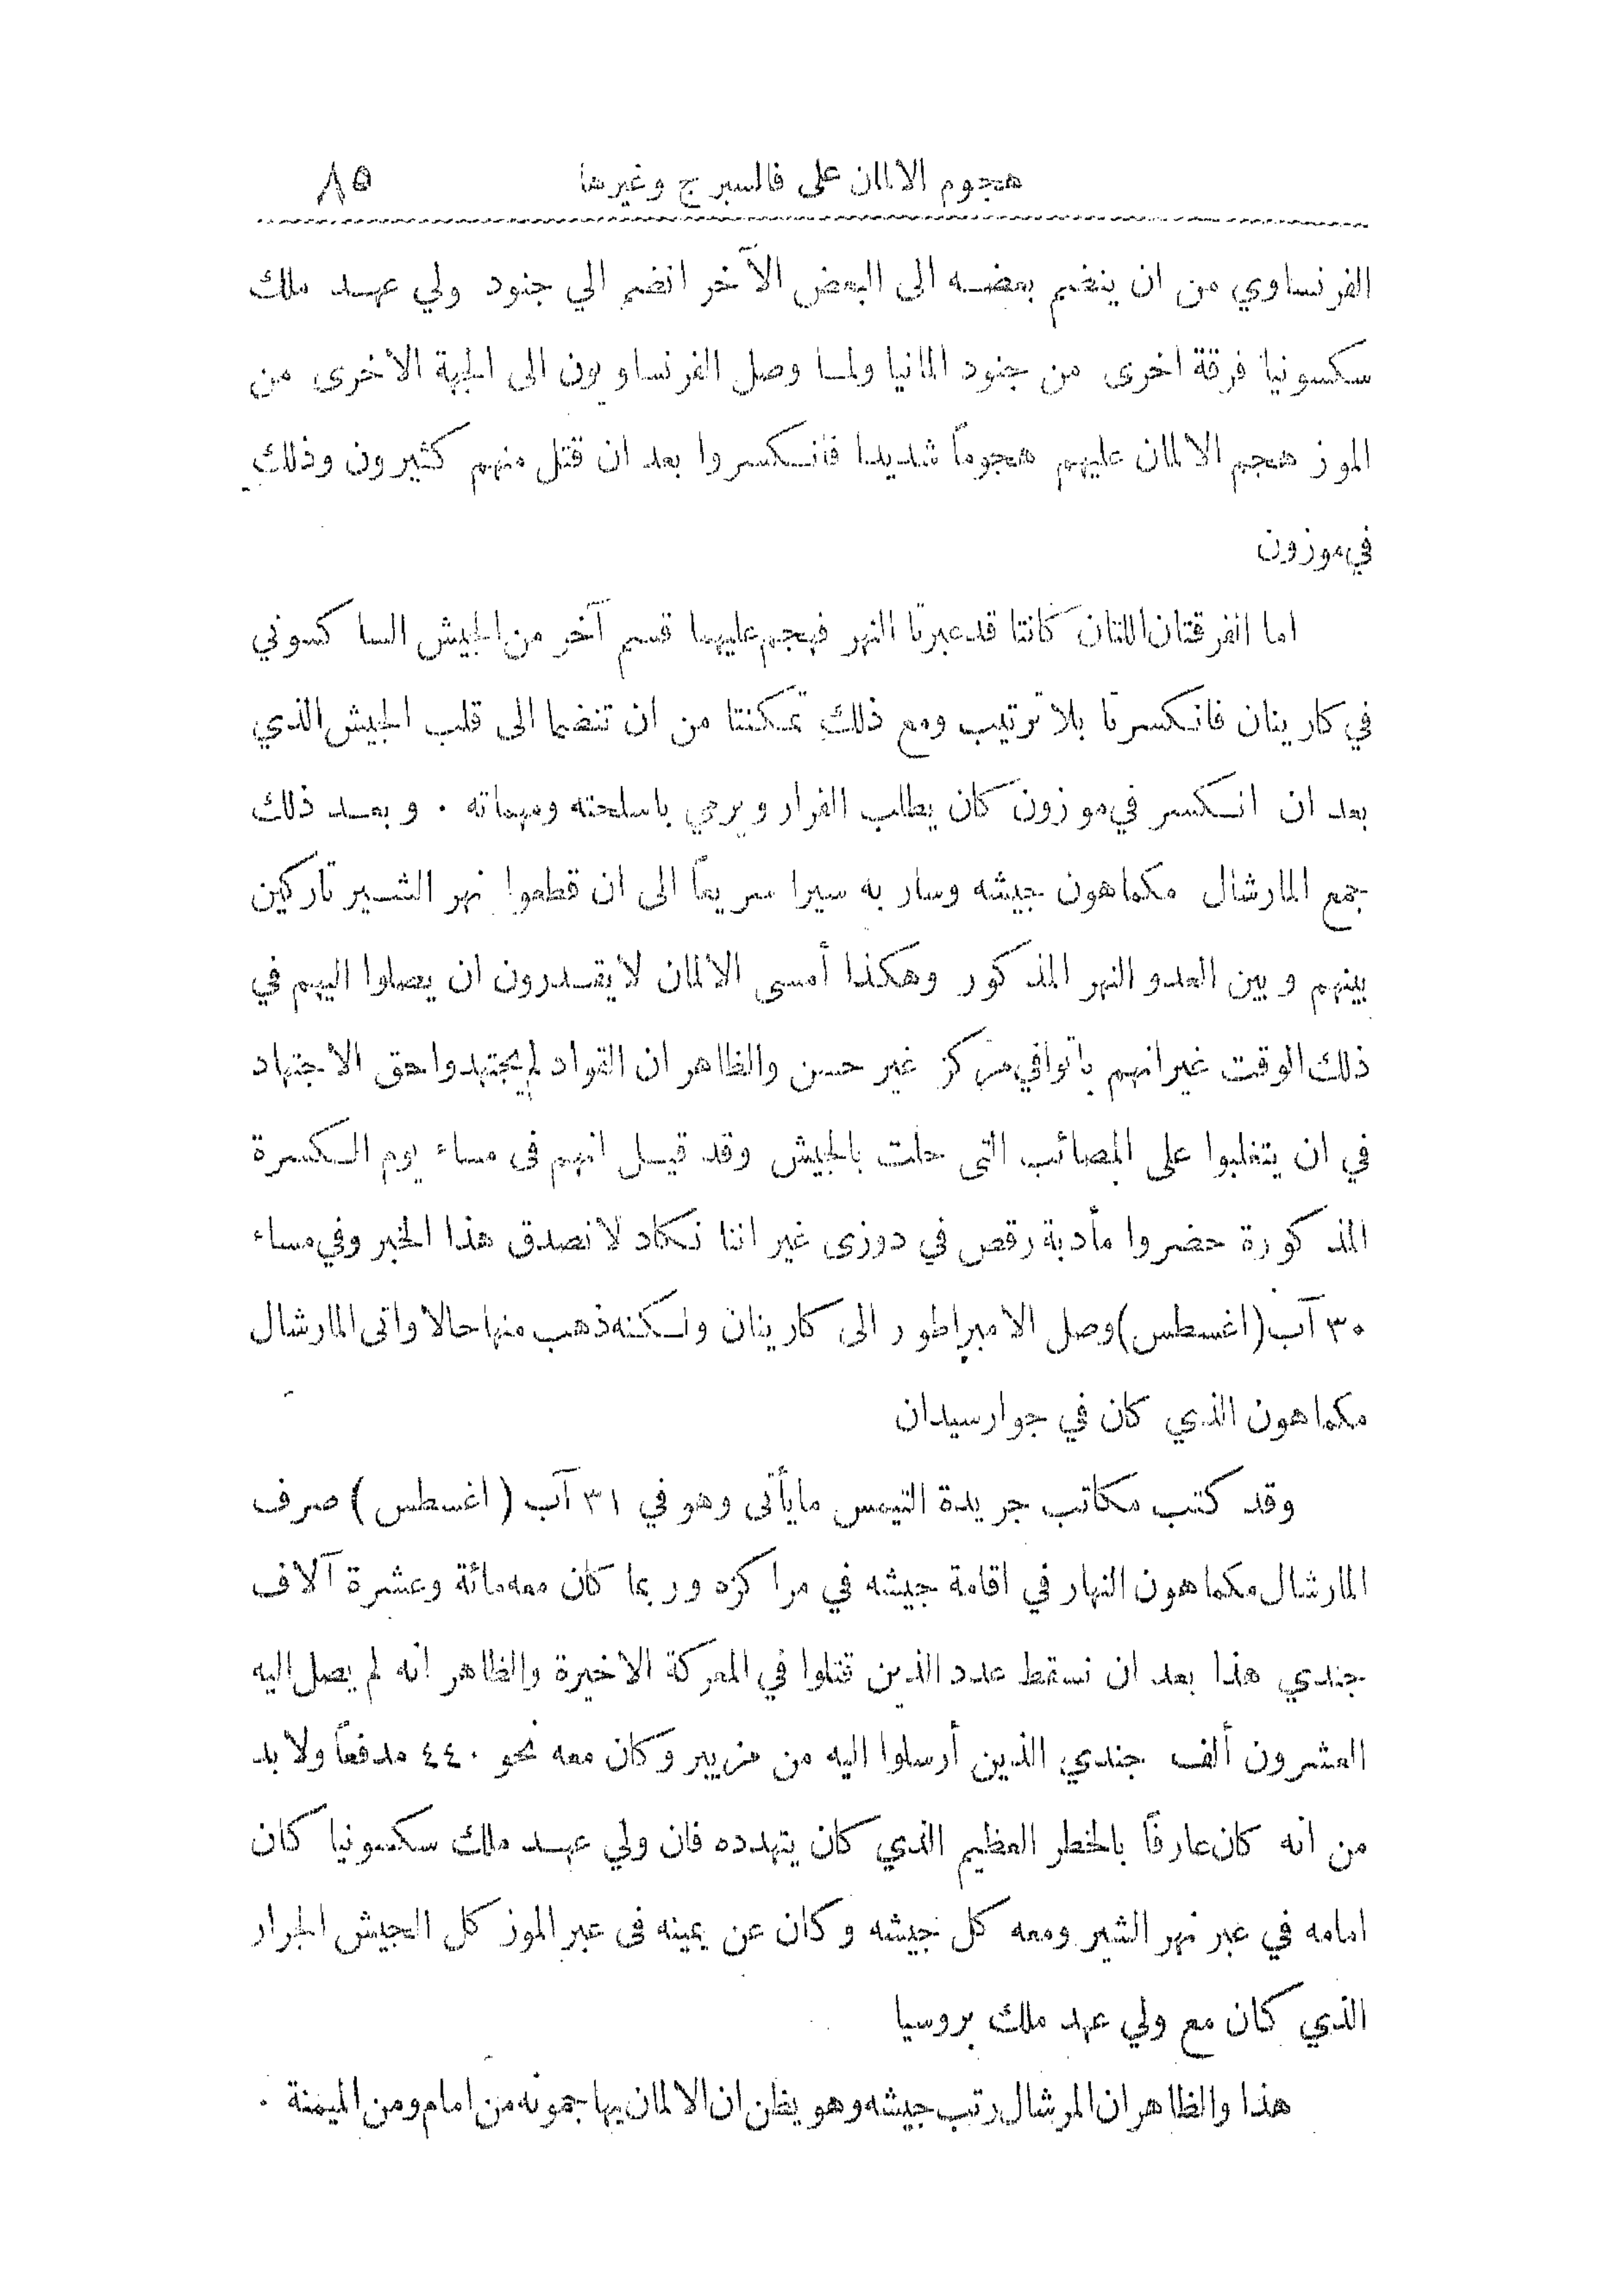 هجوم الالمان على فالسبرج وغيرها ٨٥
الفرنساوي من ان ينضم بعضه الى البعض الآخر انضم الي جنود ولي عهد ملك
سكسونيا فرقة اخرى من جنود المانيا ولما وصل الفرنساويون الى الجهة الاخرى من
الموز هجم الالمان عليهم هجوماً شديدا فانكسروا بعد ان قتل منهم كثيرون وذلك
في موزون
اما الفرقتان اللتان كانتا قد عبرتا النهر فهجم عليهما قسم آخر من الجيش الساكسوني
في كارينان فانكسرتا بلا ترتيب ومع ذلك تمكنتا من ان تنضما الى قلب الجيش الذي
بعد ان انكسر في موزون كان يطلب الفرار ويرمي باسلحته ومهماته . وبعد ذلك
جمع المارشال مكماهون جيشه وسار به سيرا سريعاً الى ان قطعوا نهر الشير تاركين
بينهم وبين العدو النهر المذكور وهكذا أمسى الالمان لا يقدرون ان يصلوا اليهم في
ذلك الوقت غير انهم باتوا في مركز غير حسن والظاهر ان القواد لم يجتهدوا حق الاجتهاد
في ان يتغلبوا على المصائب التى حلت بالجيش وقد قيل انهم فى مساء يوم الكسرة
المذكورة حضروا مأدبة رقص في دوزى غير اننا نكاد لا نصدق هذا الخبر وفي مساء
٣٠ آب (اغسطس) وصل الامبراطور الى كارينان ولكنه ذهب منها حالا واتى المارشال
مكماهون الذي كان في جوار سيدان
وقد كتب مكاتب جريدة التيمس ما يأتى وهو في ٣١ آب (اغسطس) صرف
المارشال مكماهون النهار في اقامة جيشه في مراكزه وربما كان معه مائة وعشرة آلاف
جندي هذا بعد ان نسقط عدد الذين قتلوا في المعركة الاخيرة والظاهر انه لم يصل اليه
العشرون ألف جندي الذين أرسلوا اليه من مزيير وكان معه نحو ٤٤٠ مدفعاً ولا بد
من انه كان عارفاً بالخطر العظيم الذي كان يتهدده فان ولي عهد ملك سكسونيا كان
امامه في عبر نهر الشير ومعه كل جيشه وكان عن يمينه فى عبر الموز كل الجيش الجرار
الذي كان مع ولي عهد ملك بروسيا
هذا والظاهر ان المرشال رتب جيشه وهو يظن ان الالمان يهاجمونه من امام ومن الميمنة .